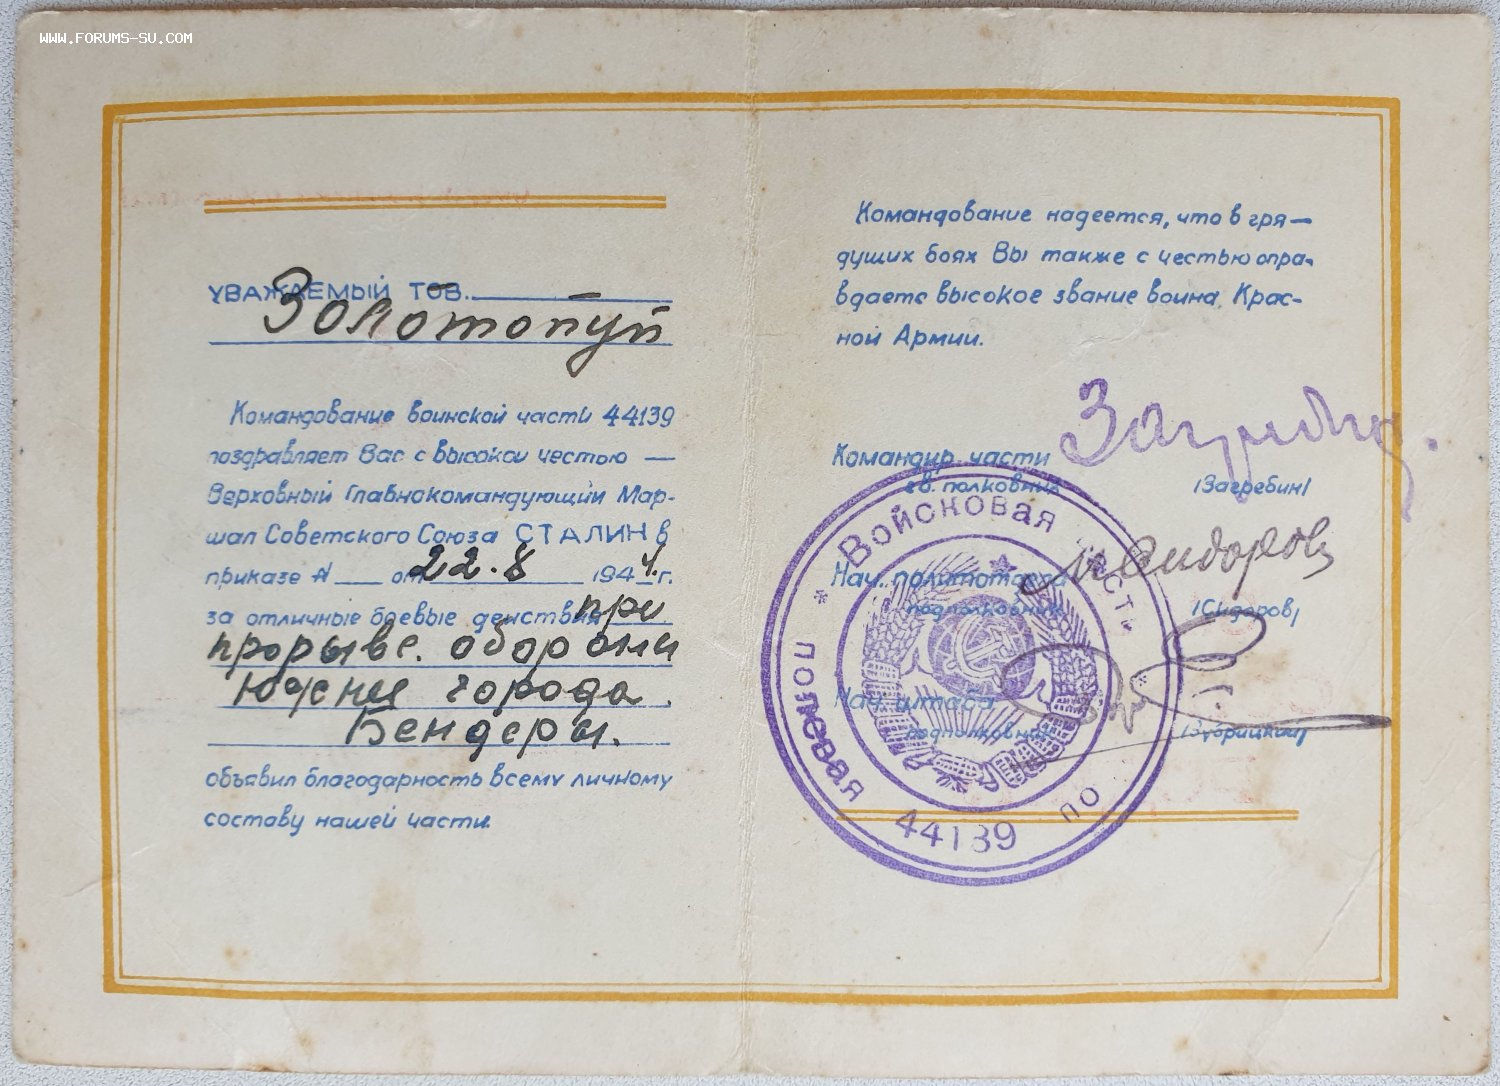 WWW.FORUMS-SU.COM
УВАЖАЕМЫЙ ТОВ.
Золотопуп
Командование воинской части 44139
поздравляет Вас с высокой честью —
Верховный Главнокомандующий Мар-
шал Советского Союза СТАЛИН в
приказе № от 22.8 1944.г.
за отличные боевые действия при
прорыве. обороны
южней города.
Бендеры.
объявил благодарность всему личному
составу нашей части.
Командование надеется, что в гря—
дущих боях Вы также с честью опра-
вдаете высокое звание воина Крас-
ной Армии.
Командир части
гв. полковник /Загребин/
Нач. политотдела
подполковник /Сидоров/
Нач. штаба
подполковник /Зубрицкий/
* Войсковая часть *
полевая 44139 по